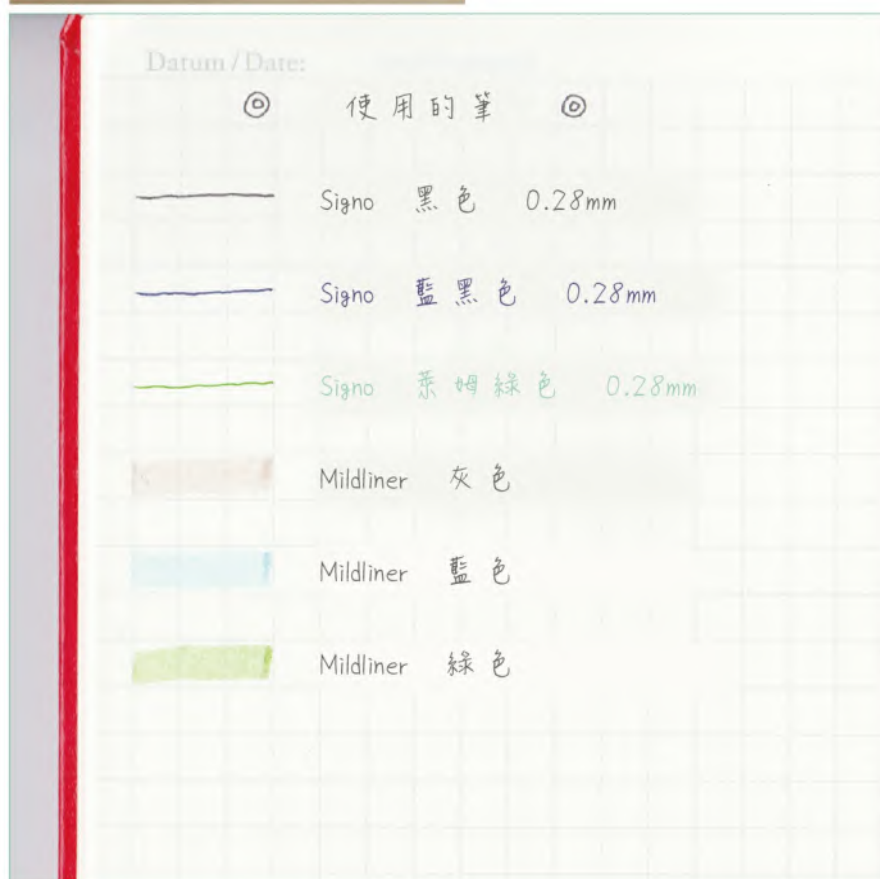 Datum / Date:
◎ 使用的筆 ◎
Signo 黑色 0.28mm
Signo 藍黑色 0.28mm
Signo 萊姆綠色 0.28mm
Mildliner 灰色
Mildliner 藍色
Mildliner 綠色